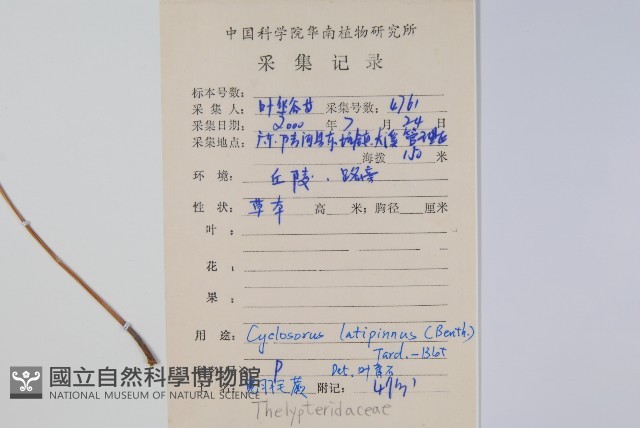 中国科学院华南植物研究所
采集记录
标本号数:
采集人: 叶华谷 采集号数: 4761
采集日期: 2000年7月24日
采集地点: 广东.陆河县东坑镇
海拨 150 米
环境: 丘陵.路旁
性状: 草本 高 米; 胸径 厘米
叶:
花:
果:
用途: Cyclosorus latipinnus (Benth.)
Tard.-Blot
P Det. 叶育石
毛蕨 附记:
Thelypteridaceae
國立自然科學博物館
NATIONAL MUSEUM OF NATURAL SCIENCE